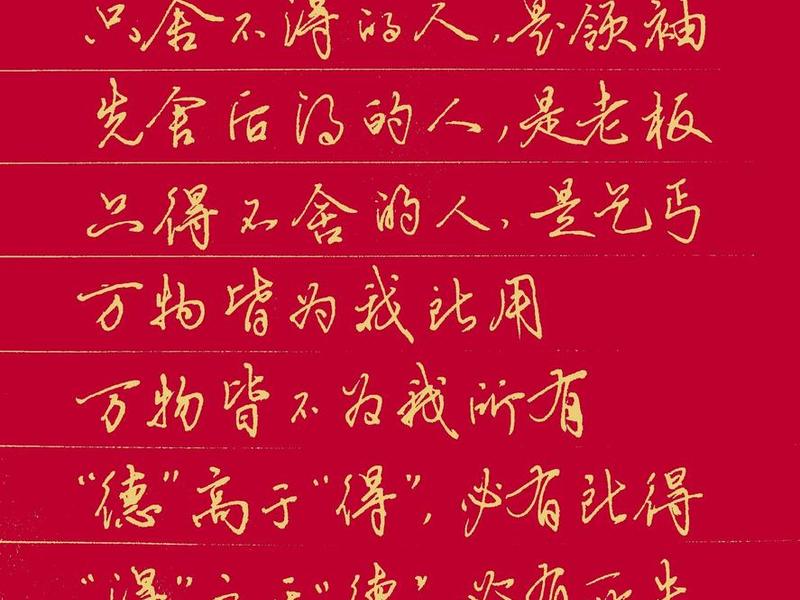 只舍不得的人，是领袖
先舍后得的人，是老板
只得不舍的人，是乞丐
万物皆为我所用
万物皆不为我所有
“德”高于“得”，必有所得
“得”高于“德”，必有所失